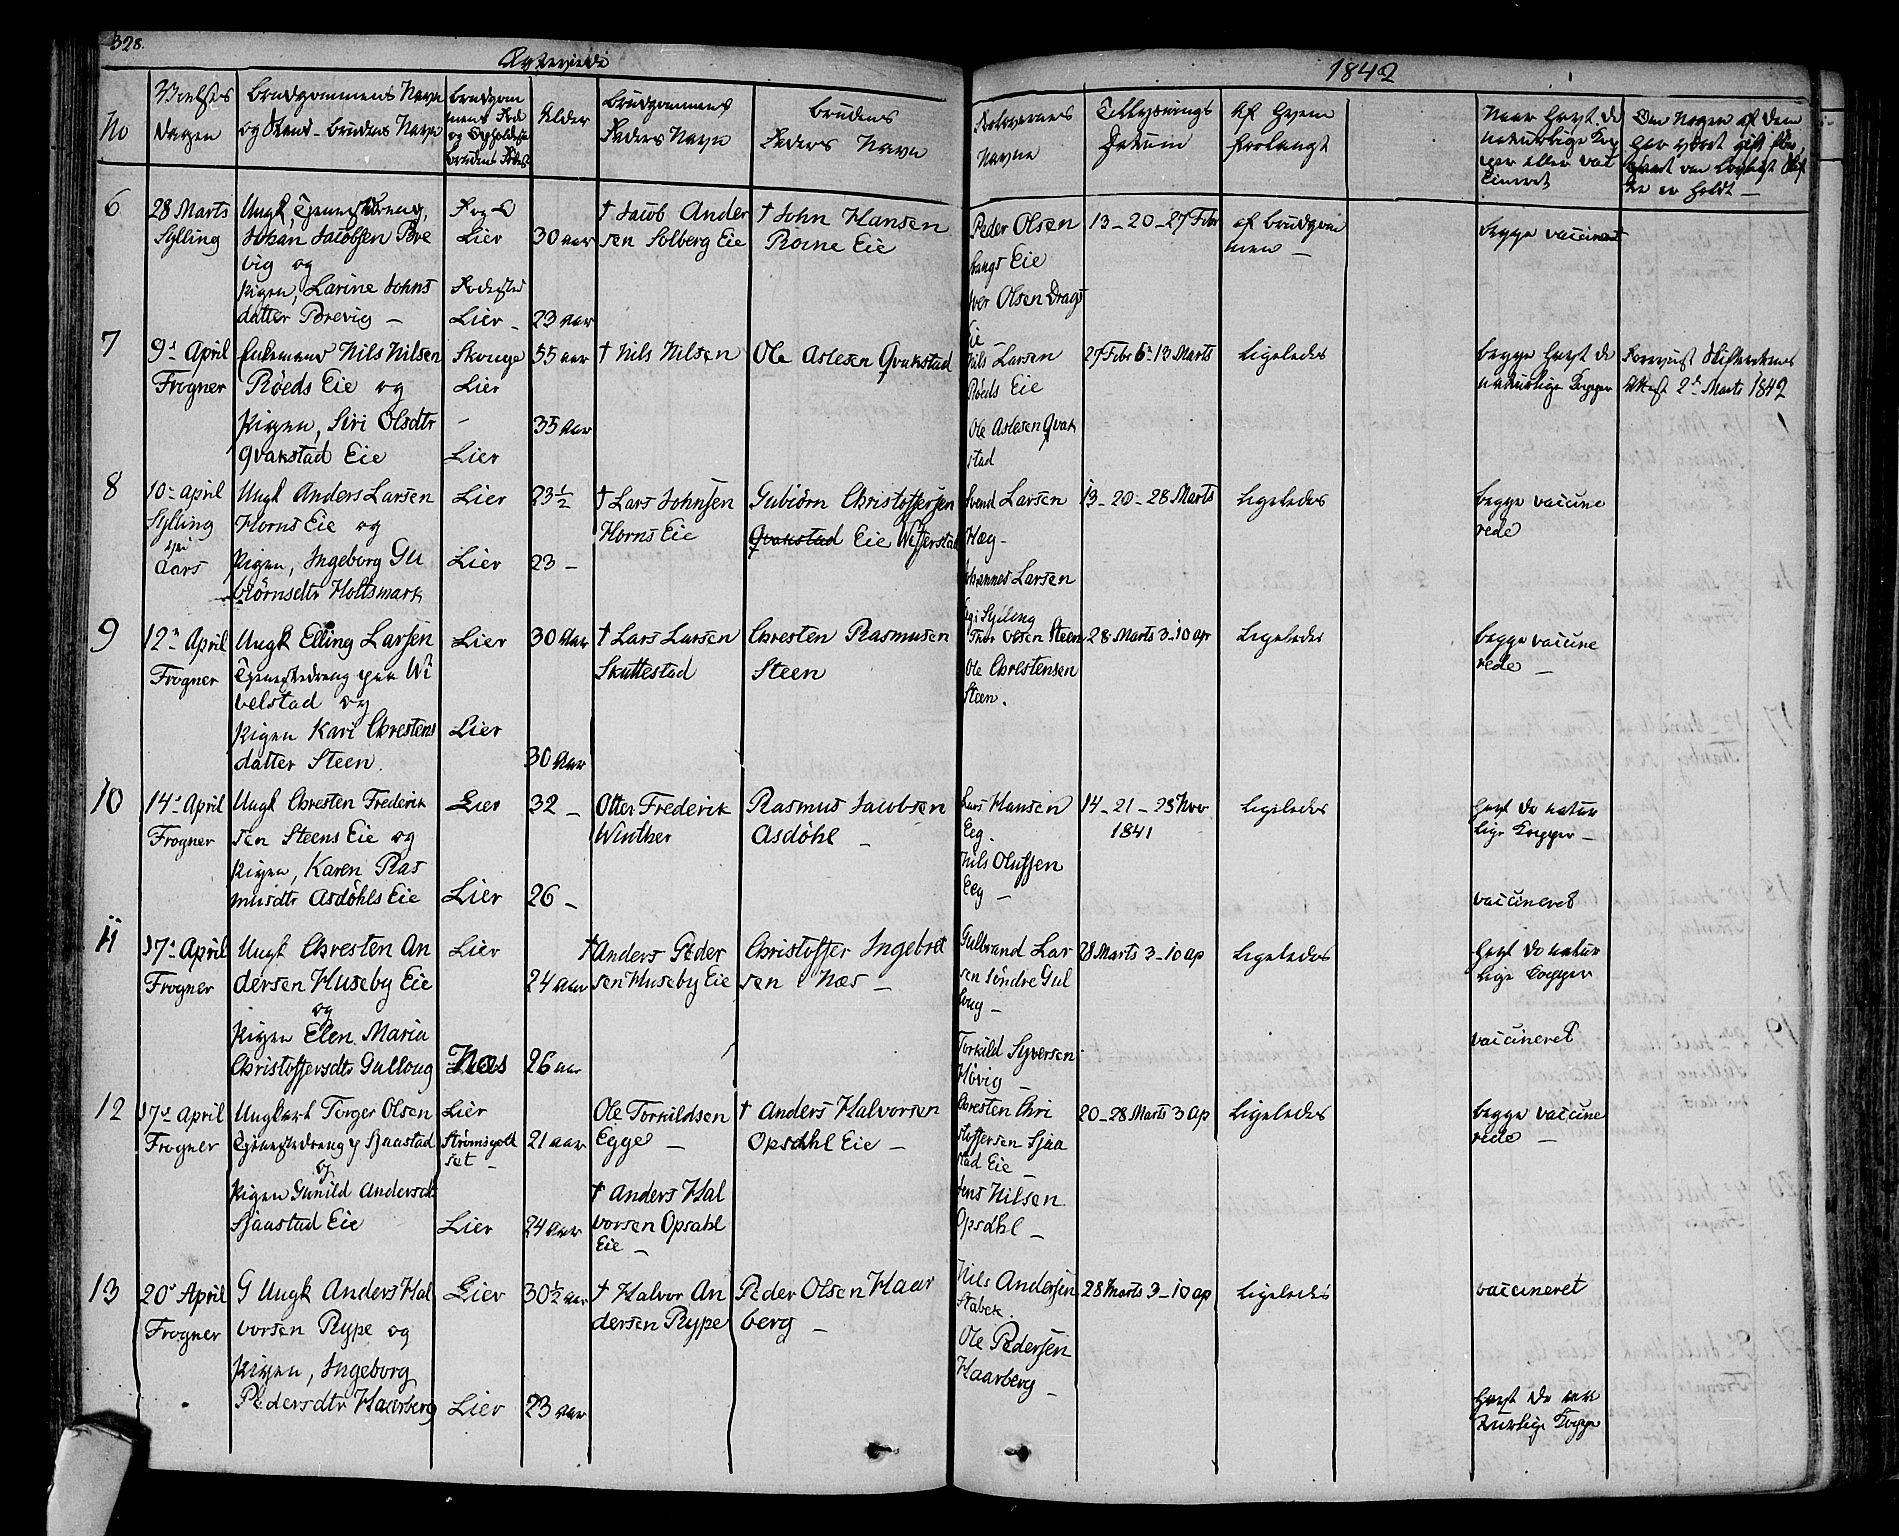 328.
Egteviede
1842
No
Vielses Dagen
Brudgommens Navn og Stand - Brudens Navn
Brudgommens Føde og Opholdssted Brudens Fødest
Alder
Brudgommens Faders Navn
Brudens Faders Navn
Forloverens Navne
Tillysnings Datum
Af Hvem forlangt
Naar havt de naturlige Kopper eller vaccineret
Om Nogen af dem har været gift før, hvort vom lovligt Skifte er holdt
6
28 Marts
Sylling
Ungk, Tjenestedreng,
Johan Jacobsen Bre
vig og
Pigen, Larine Johns
datter Brevig —
F og O
Lier
Fødested
Lier —
30 aar
23 aar
† Jacob Ander
sen Solberg Eie
† John Hansen
Roine Eie
Peder Olsen
bangs Eie
Iver Olsen Drags
Eie —
13 - 20 - 27 Febr
af Brudgom
men —
begge vaccineret
7
9d April
Frogner
Enkemand Nils Nilsen
Røeds Eie og
Pigen, Siri Olsdtr
Qvakstad Eie
Skouge
Lier
—
Lier
55 aar
35 aar
† Nils Nilsen
Ole Aslesen Qvakstad
Nils Larsen
Røeds Eie
Ole Aslesen Qvak
stad
27 Febr 6- 13 Marts
Ligeledes
begge havt de
naturlige Kopper
Forevist Skifterettens
Attest 2d Marts 1842
8
10- April
Sylling
Aars
Ungk Anders Larsen
Horns Eie og
Pigen, Ingeborg Gu
biørnsdtr Holtsmark
Lier
Lier
23½
23 —
† Lars Johnsen
Horns Eie
Gubiørn Christoffersen
Qvakstad Eie Wefferstad
Svend Larsen
Hæg -
Johannes Larsen
13 - 20 - 28 Marts
Ligeledes
begge vaccine
rede
9
12- April
Frogner
Ungk Elling Larsen
Tjenestedreng paa Wi
velstad og
Pigen Kari Chrestens
datter Steen.
Lier
Lier
30 aar
30 aar
† Lars Larsen
Skuttestad
Chresten Rasmusen
Steen
Thor Olsen Steen
Ole Chrestensen
Steen.
28 Marts 3 - 10 Apr
Ligeledes
begge vaccine
rede —
10
14d April
Frogner
Ungk Chresten Frederik
sen Steens Eie og
Pigen, Karen Ras
musdtr Asdöhls Eie
Lier
Lier
32 —
26 —
Otter Frederik
Winther
Rasmus Jacobsen
Asdöhl —
Lars Hansen
Eeg -
Nils Olufsen
Eeg —
14 - 21 - 28 Nov
1841
Ligeledes
havt de natur
lige Kopper —
vaccineret
11
17d April
Frogner
Ungk Chresten An
dersen Huseby Eie
og
Pigen Elen Maria
Christoffersdtr Gulloug
Lier
Næs
24 aar
26 aar
† Anders Peder
sen Huseby Eie
Christoffer Ingebret
sen Næs —
Gulbrand Lar
sen søndre Gul
loug —
Torkild Syversen
Høvig —
28 Marts 3 - 10 Ap
Ligeledes
havt de natur
lige Kopper
vaccineret
12
17d April
Frogner
Ungkarl Torger Olsen
Tjenestedreng p Sjaastad
og
Pigen Gunild Andersdt
Sjaastad Eie
Lier
Strømsgodt
set —
Lier
21 aar
24 aar
Ole Torkildsen
Egge —
† Anders Hal
vorsen Opsahl
Eie —
† Anders Halvorsen
Opsdhl Eie —
Chresten Chri
stoffersen Sjaa
stad Eie —
Jens Nilsen
Opsdhl —
20 - 28 Marts 3 Ap
Ligeledes
begge vaccine
rede —
13
20d April
Frogner
G Ungk Anders Hal
vorsen Rype og
Pigen, Ingeborg
Pedersdtr Haarberg
Lier
Lier
30½ aar
23 aar
† Halvor An
dersen Rype
Peder Olsen Haar
berg —
Nils Andersen
Stabek.
Ole Pedersen
Haarberg —
28 Marts 3 - 10 Ap
Ligeledes
vaccineret
havt de na
turlige Kopper